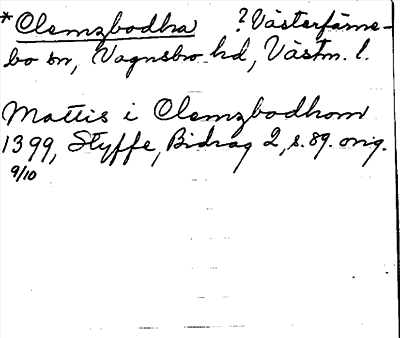 *Clemzbodha ?Västerfärne-
bo sn, Vagnsbro hd, Västm. l.
Mattis i Clemzbodhom
1399, Styffe, Bidrag 2, s. 89. orig.
9/10